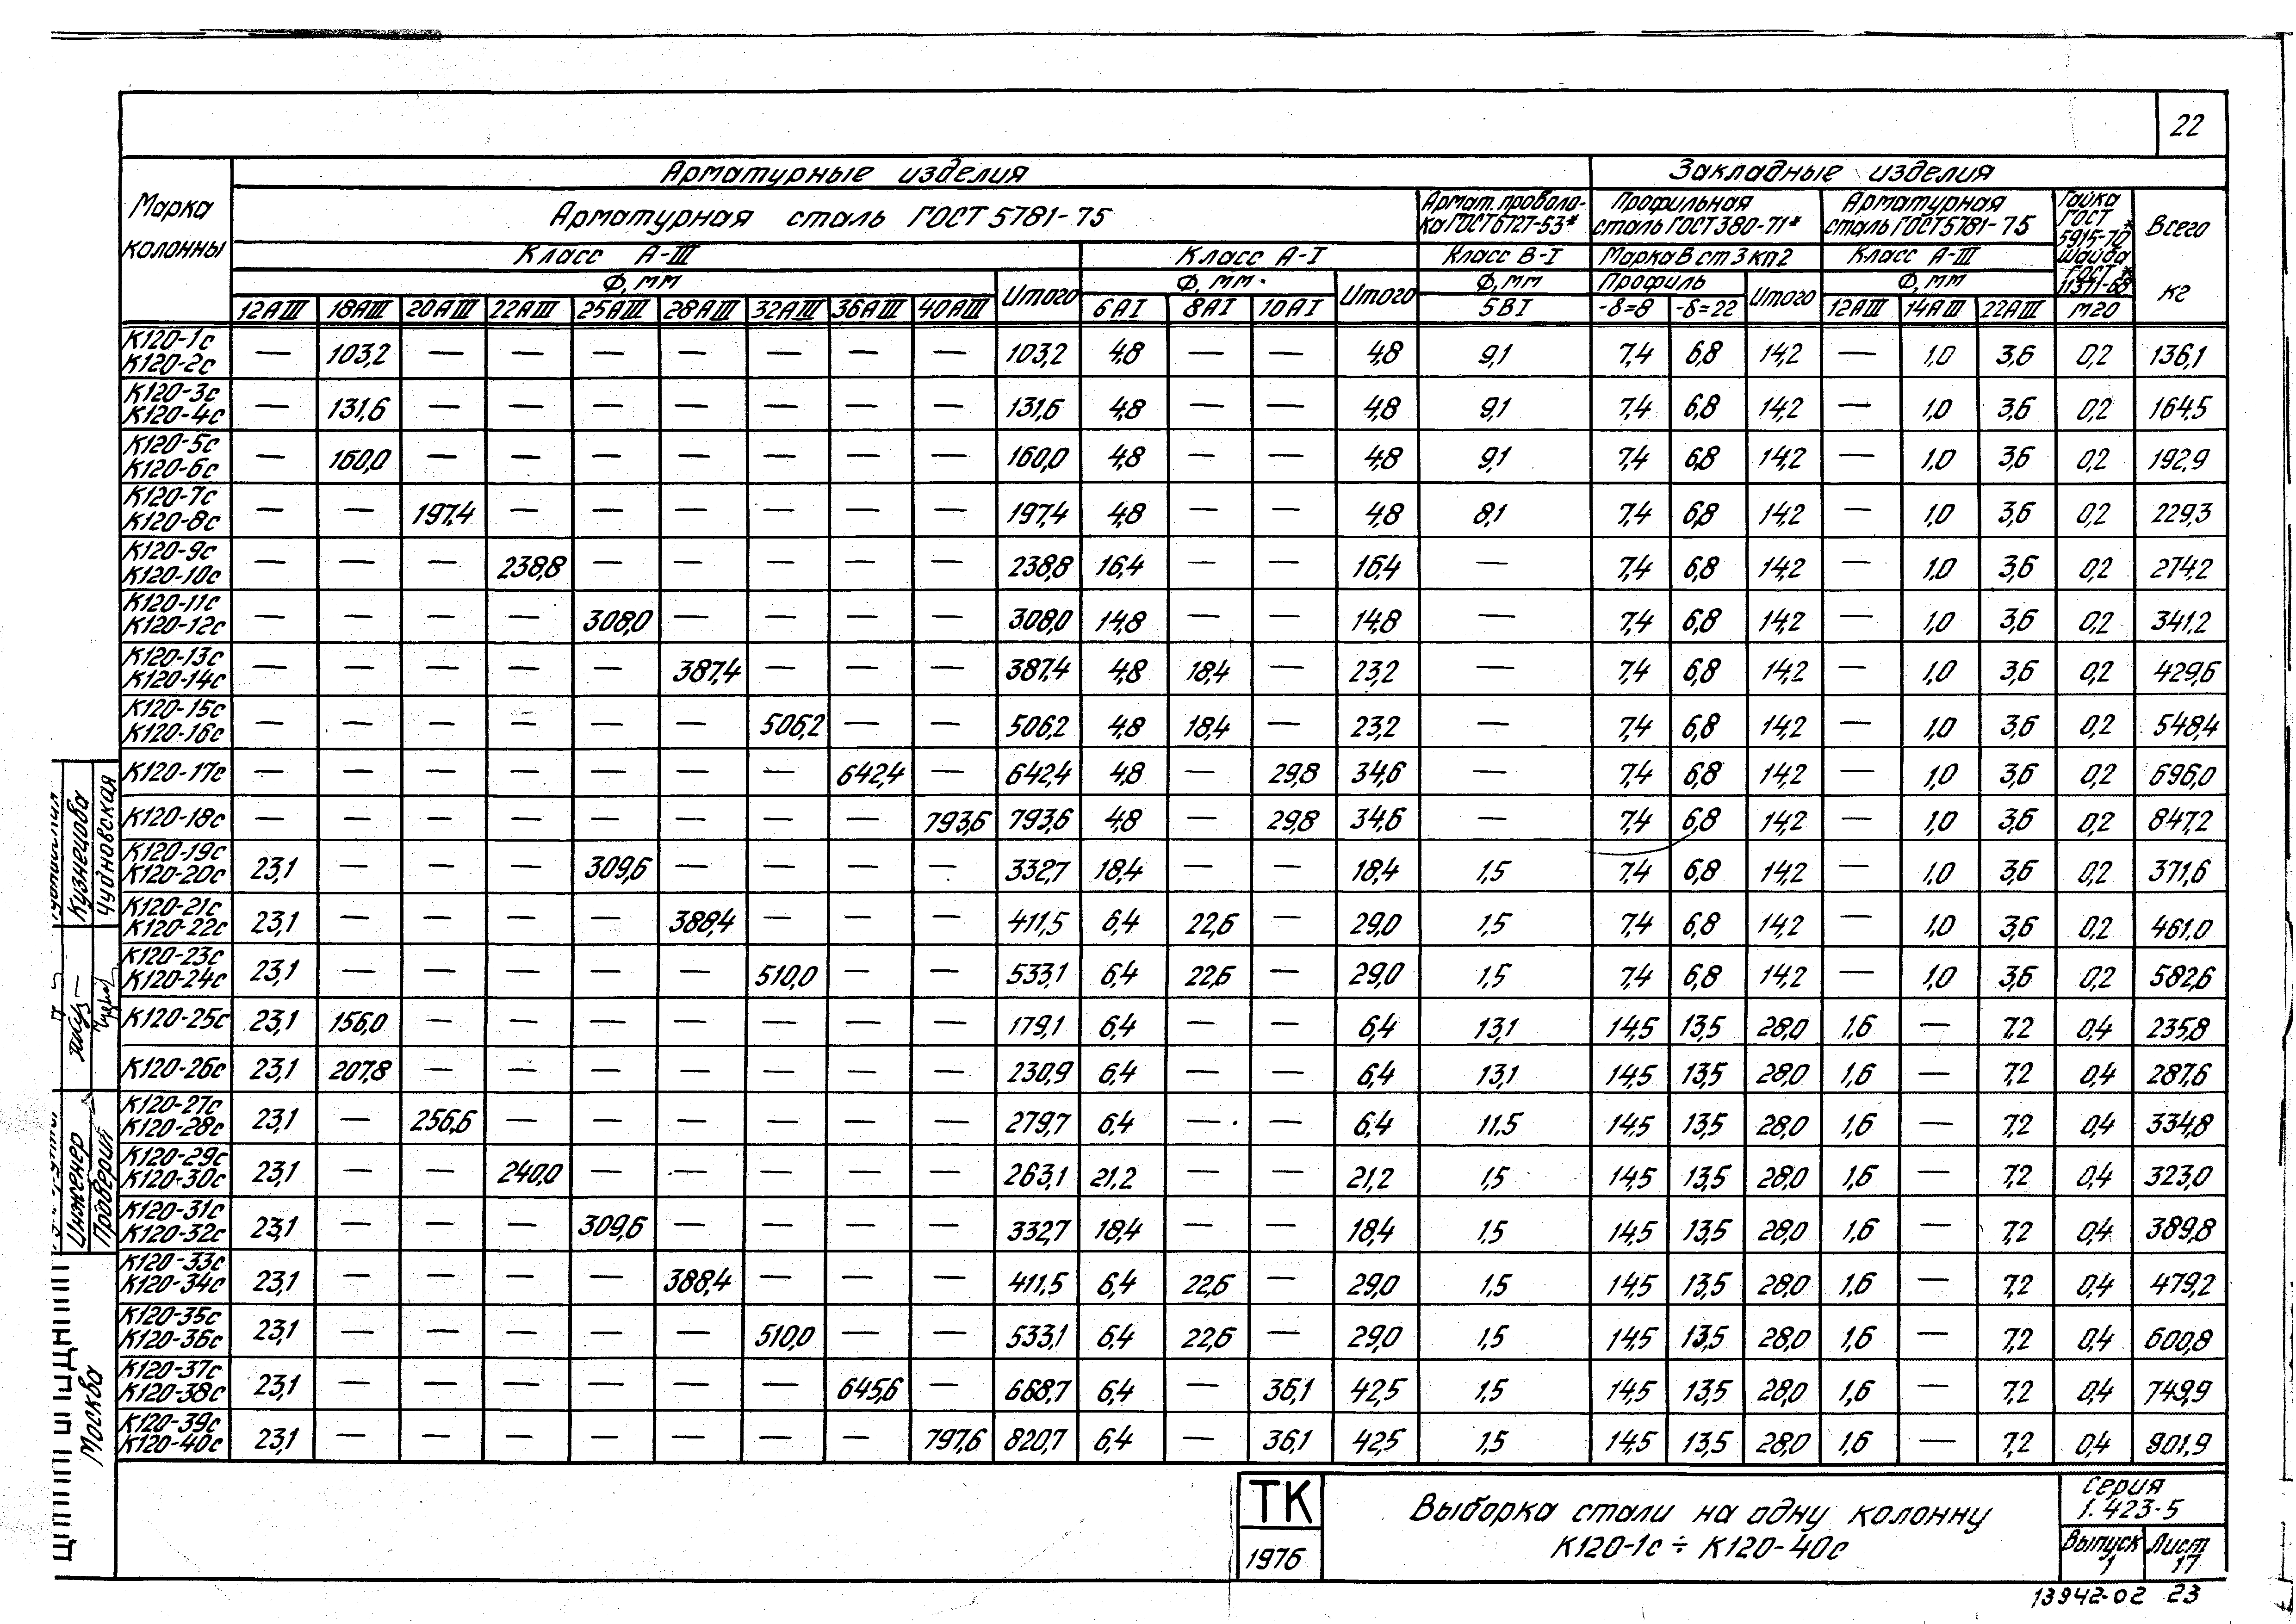 22
Марка колонны
Арматурные изделия
Закладные изделия
Всего кг
Арматурная сталь ГОСТ 5781-75
Армат. проволока ГОСТ 6727-53*
Профильная сталь ГОСТ 380-71*
Арматурная сталь ГОСТ 5781-75
Гайка ГОСТ 5915-70* Шайба ГОСТ 11371-68*
Класс А-III
Класс А-I
Класс В-I
Марка В ст 3 кп2
Класс А-III
Ф, мм
Итого
Ф, мм
Итого
Ф, мм
Профиль
Итого
Ф, мм
12АIII 18АIII 20АIII 22АIII 25АIII 28АIII 32АIII 36АIII 40АIII 6АI 8АI 10АI 5ВI -δ=8 -δ=22 12АIII 14АIII 22АIII М20
К120-1с К120-2с — 103,2 — — — — — — — 103,2 4,8 — — 4,8 9,1 7,4 6,8 14,2 — 1,0 3,6 0,2 136,1
К120-3с К120-4с — 131,6 — — — — — — — 131,6 4,8 — — 4,8 9,1 7,4 6,8 14,2 — 1,0 3,6 0,2 164,5
К120-5с К120-6с — 160,0 — — — — — — — 160,0 4,8 — — 4,8 9,1 7,4 6,8 14,2 — 1,0 3,6 0,2 192,9
К120-7с К120-8с — — 197,4 — — — — — — 197,4 4,8 — — 4,8 8,1 7,4 6,8 14,2 — 1,0 3,6 0,2 229,3
К120-9с К120-10с — — — 238,8 — — — — — 238,8 16,4 — — 16,4 — 7,4 6,8 14,2 — 1,0 3,6 0,2 274,2
К120-11с К120-12с — — — — 308,0 — — — — 308,0 14,8 — — 14,8 — 7,4 6,8 14,2 — 1,0 3,6 0,2 341,2
К120-13с К120-14с — — — — — 387,4 — — — 387,4 4,8 18,4 — 23,2 — 7,4 6,8 14,2 — 1,0 3,6 0,2 429,6
К120-15с К120-16с — — — — — — 506,2 — — 506,2 4,8 18,4 — 23,2 — 7,4 6,8 14,2 — 1,0 3,6 0,2 548,4
К120-17с — — — — — — — 642,4 — 642,4 4,8 — 29,8 34,6 — 7,4 6,8 14,2 — 1,0 3,6 0,2 696,0
К120-18с — — — — — — — — 793,6 793,6 4,8 — 29,8 34,6 — 7,4 6,8 14,2 — 1,0 3,6 0,2 847,2
К120-19с К120-20с 23,1 — — — 309,6 — — — — 332,7 18,4 — — 18,4 1,5 7,4 6,8 14,2 — 1,0 3,6 0,2 371,6
К120-21с К120-22с 23,1 — — — — 388,4 — — — 411,5 6,4 22,6 — 29,0 1,5 7,4 6,8 14,2 — 1,0 3,6 0,2 461,0
К120-23с К120-24с 23,1 — — — — — 510,0 — — 533,1 6,4 22,6 — 29,0 1,5 7,4 6,8 14,2 — 1,0 3,6 0,2 582,6
К120-25с 23,1 156,0 — — — — — — — 179,1 6,4 — — 6,4 13,1 14,5 13,5 28,0 1,6 — 7,2 0,4 235,8
К120-26с 23,1 207,8 — — — — — — — 230,9 6,4 — — 6,4 13,1 14,5 13,5 28,0 1,6 — 7,2 0,4 287,6
К120-27с К120-28с 23,1 — 256,6 — — — — — — 279,7 6,4 — — 6,4 11,5 14,5 13,5 28,0 1,6 — 7,2 0,4 334,8
К120-29с К120-30с 23,1 — — 240,0 — — — — — 263,1 21,2 — — 21,2 1,5 14,5 13,5 28,0 1,6 — 7,2 0,4 323,0
К120-31с К120-32с 23,1 — — — 309,6 — — — — 332,7 18,4 — — 18,4 1,5 14,5 13,5 28,0 1,6 — 7,2 0,4 389,8
К120-33с К120-34с 23,1 — — — — 388,4 — — — 411,5 6,4 22,6 — 29,0 1,5 14,5 13,5 28,0 1,6 — 7,2 0,4 479,2
К120-35с К120-36с 23,1 — — — — — 510,0 — — 533,1 6,4 22,6 — 29,0 1,5 14,5 13,5 28,0 1,6 — 7,2 0,4 600,8
К120-37с К120-38с 23,1 — — — — — — 645,6 — 668,7 6,4 — 36,1 42,5 1,5 14,5 13,5 28,0 1,6 — 7,2 0,4 749,9
К120-39с К120-40с 23,1 — — — — — — — 797,6 820,7 6,4 — 36,1 42,5 1,5 14,5 13,5 28,0 1,6 — 7,2 0,4 901,9
Кузнецова
Чудновская
Инженер
Проверил
Москва
ТК
1976
Выборка стали на одну колонну
К120-1с ÷ К120-40с
Серия
1.423-5
Выпуск
1
Лист
17
13942-02 23